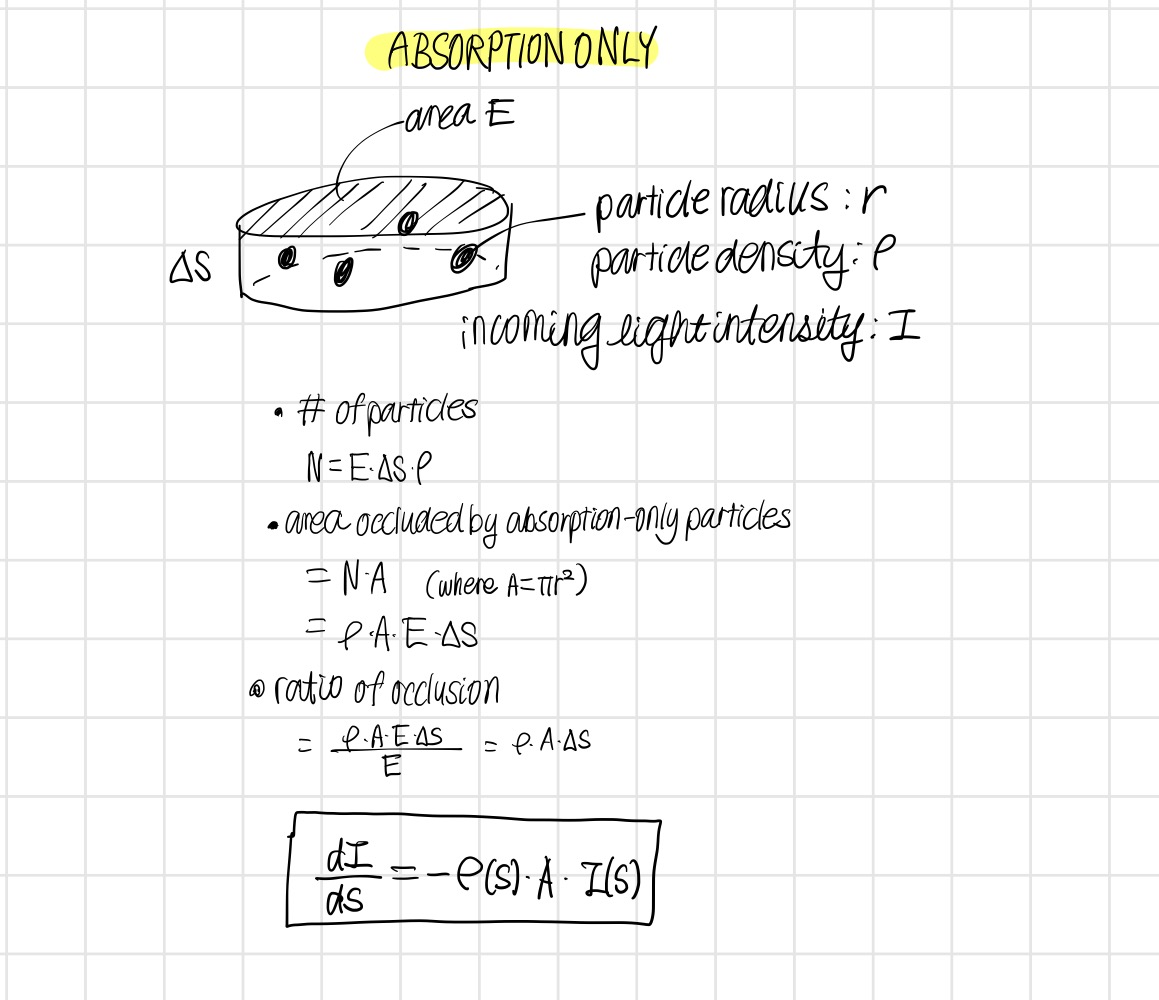 ABSORPTION ONLY
area E
particle radius : r
ΔS
particle density : ρ
incoming light intensity : I
• # of particles
N = E·ΔS·ρ
• area occluded by absorption-only particles
= N·A (where A=πr²)
= ρ·A·E·ΔS
• ratio of occlusion
= ρ·A·E·ΔS / E = ρ·A·ΔS
dI/ds = -ρ(s)·A·I(s)